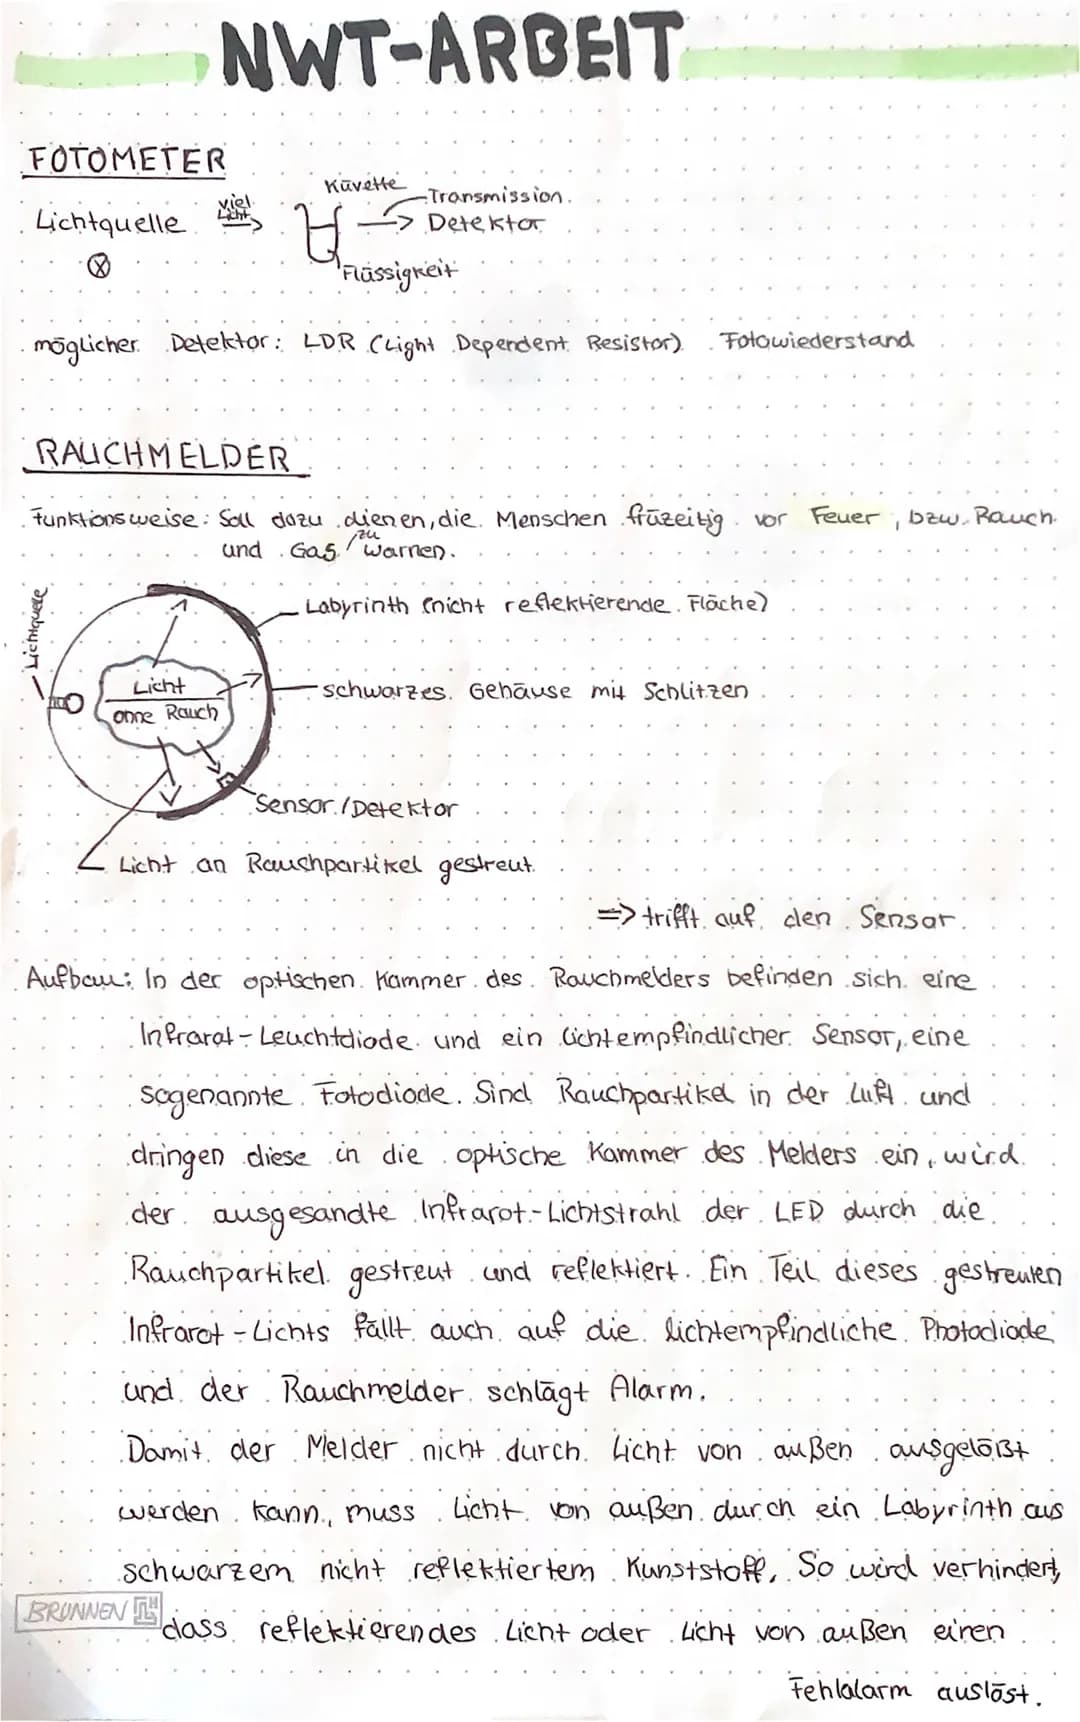 NWT-ARBEIT
FOTOMETER
Lichtquelle
viel
Licht
Küvette
Transmission
Detektor
Flüssigkeit
möglicher Detektor: LDR (Light Dependent Resistor) Fotowiederstand
RAUCHMELDER
Funktionsweise: Soll dazu dienen, die Menschen früzeitig vor Feuer, bzw. Rauch
und Gas zu warnen.
Lichtquelle
Labyrinth (nicht reflektierende Fläche)
Licht
ohne Rauch
schwarzes Gehäuse mit Schlitzen
Sensor/Detektor
Licht an Rauchpartikel gestreut
=> trifft auf den Sensor
Aufbau: In der optischen Kammer des Rauchmelders befinden sich eine
Infrarot-Leuchtdiode und ein lichtempfindlicher Sensor, eine
sogenannte Fotodiode. Sind Rauchpartikel in der Luft und
dringen diese in die optische Kammer des Melders ein, wird
der ausgesandte Infrarot-Lichtstrahl der LED durch die
Rauchpartikel gestreut und reflektiert. Ein Teil dieses gestreuten
Infrarot-Lichts fällt auch auf die lichtempfindliche Photodiode
und der Rauchmelder schlägt Alarm.
Damit der Melder nicht durch Licht von außen ausgelößt
werden kann, muss Licht von außen durch ein Labyrinth aus
schwarzem nicht reflektiertem Kunststoff. So wird verhindert,
BRUNNEN
dass reflektierendes Licht oder Licht von außen einen
Fehlalarm auslöst.